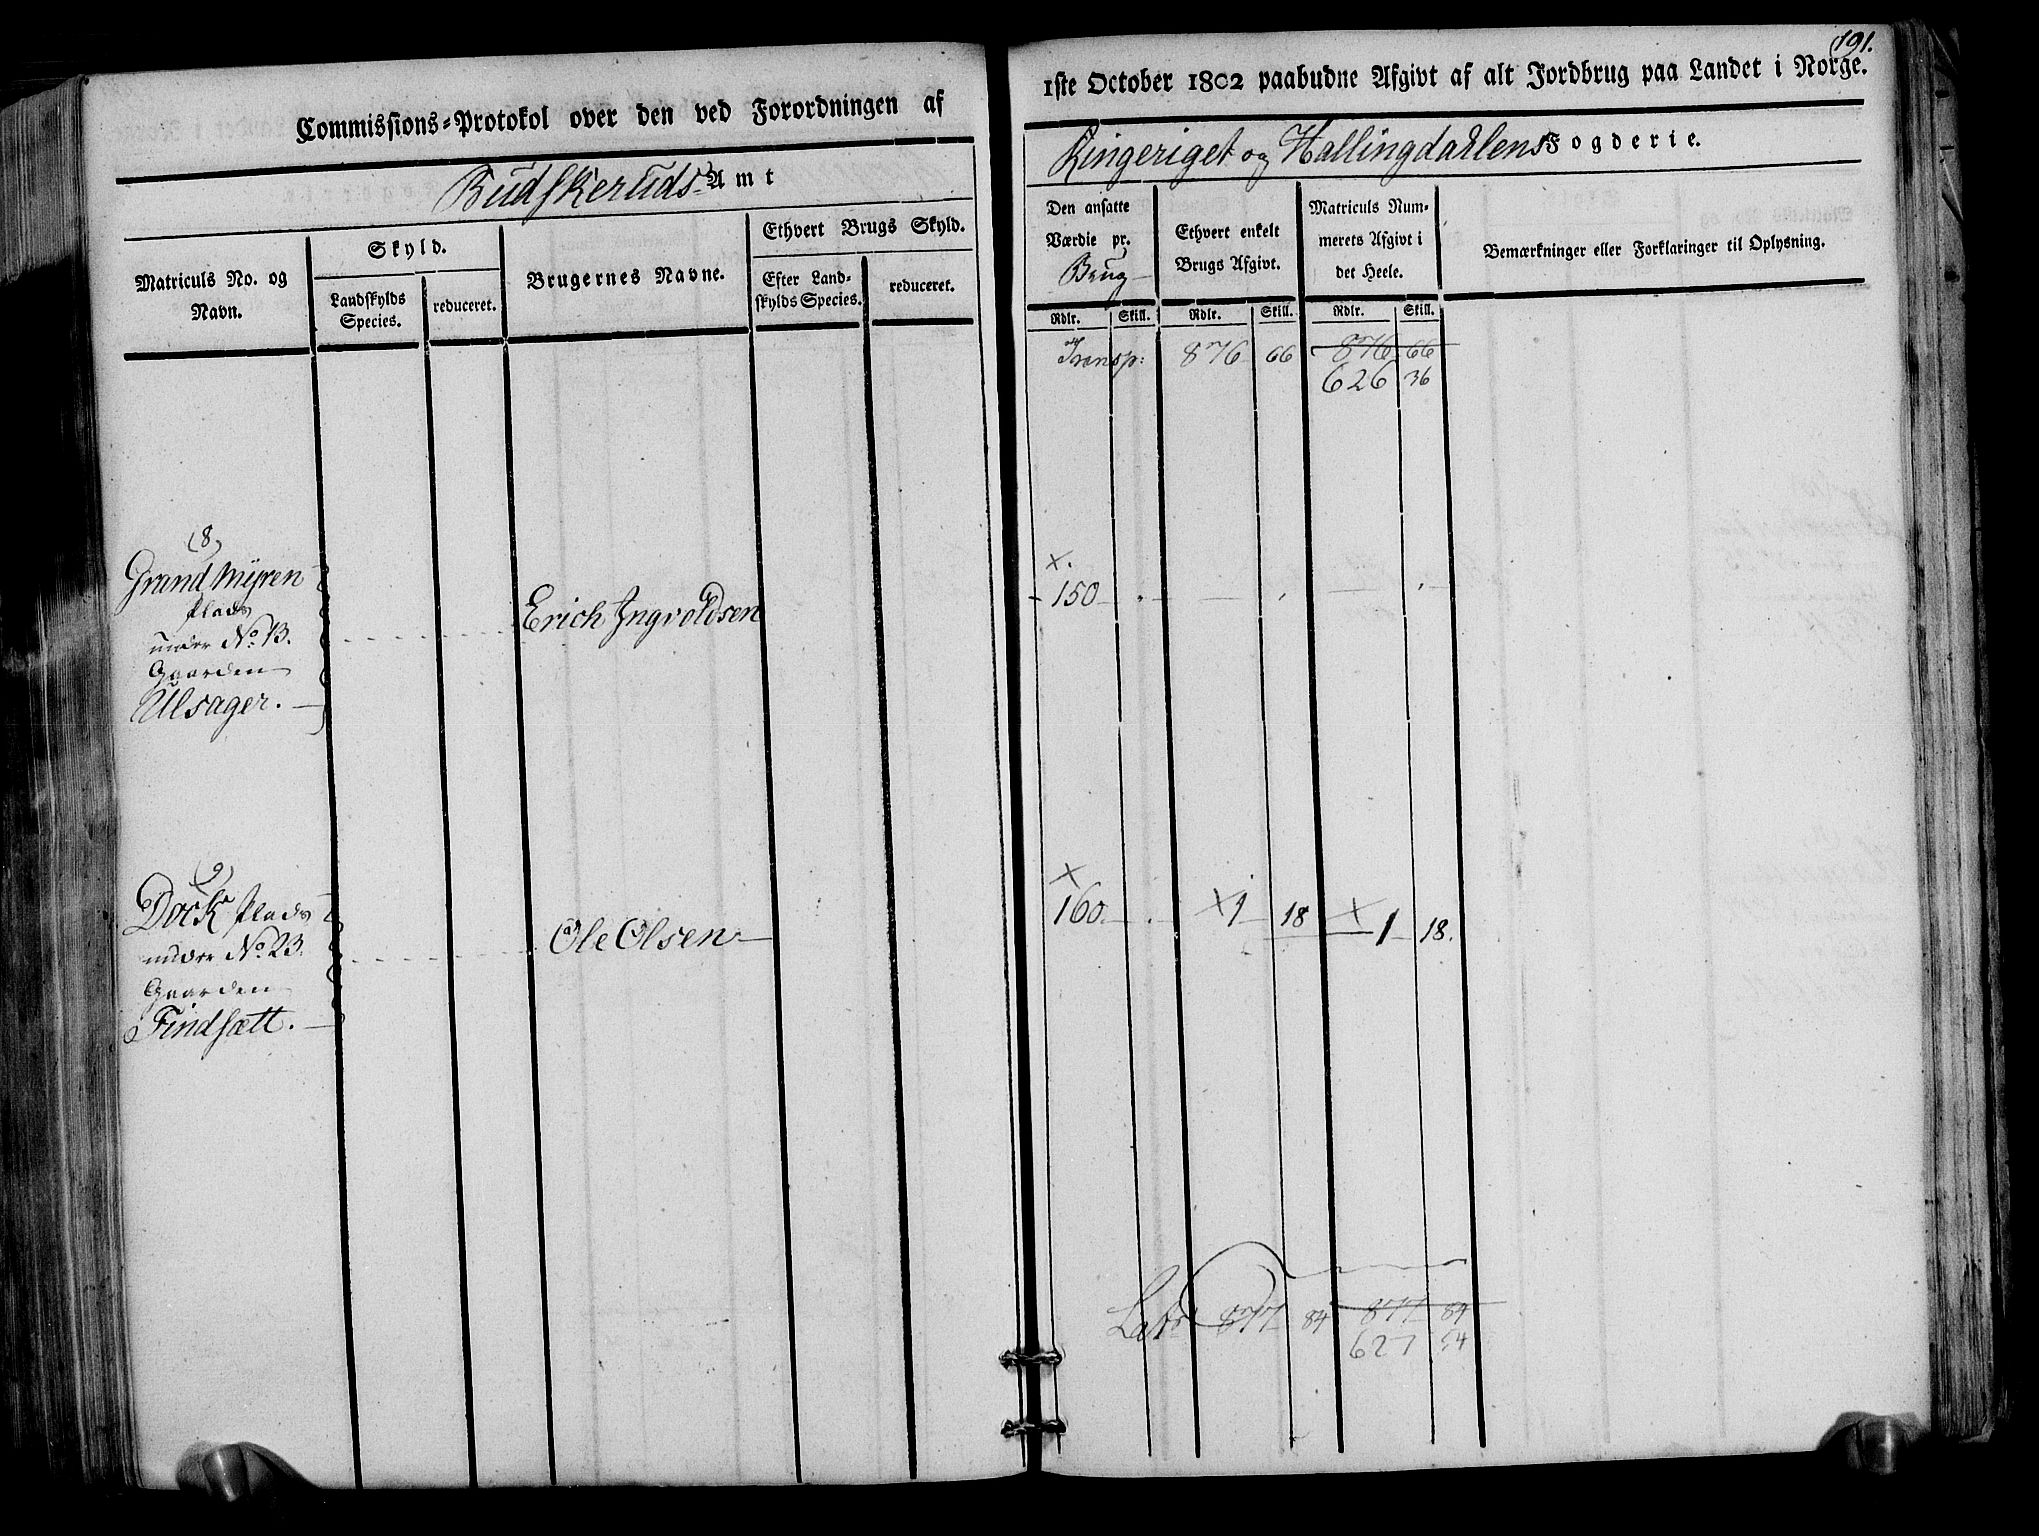 Commissions-Protokol over den ved Forordningen af
Budskeruds Amt
Matriculs No. og Navn.
Skyld.
Landskylds Species.
reduceret.
Brugernes Navne.
Ethvert Brugs Skyld.
Efter Landskylds Species.
reduceret.
(8)
Grandmÿren
Plads
under No. 13.
Gaarden
Ulsager.
Erich Ingvoldsen
(9)
Dock Plads
under No. 23.
Gaarden
Findsætt.
Ole Olsen
191.
1ste October 1802 paabudne Afgivt af alt Jordbrug paa Landet i Norge.
Ringeriget og Hallingdahlens Fogderie.
Den ansatte Værdie pr. Brug
Ethvert enkelt Brugs Afgivt.
Matriculs Nummerets Afgivt i det Heele.
Bemærkninger eller Forklaringer til Oplysning.
Rdlr. Skill. Rdlr. Skill. Rdlr. Skill.
Transp: 876 66 876 66
626 36
x.
150
x
160. x 1 18 x 1 18.
Latr 877 84 877 84
627 54